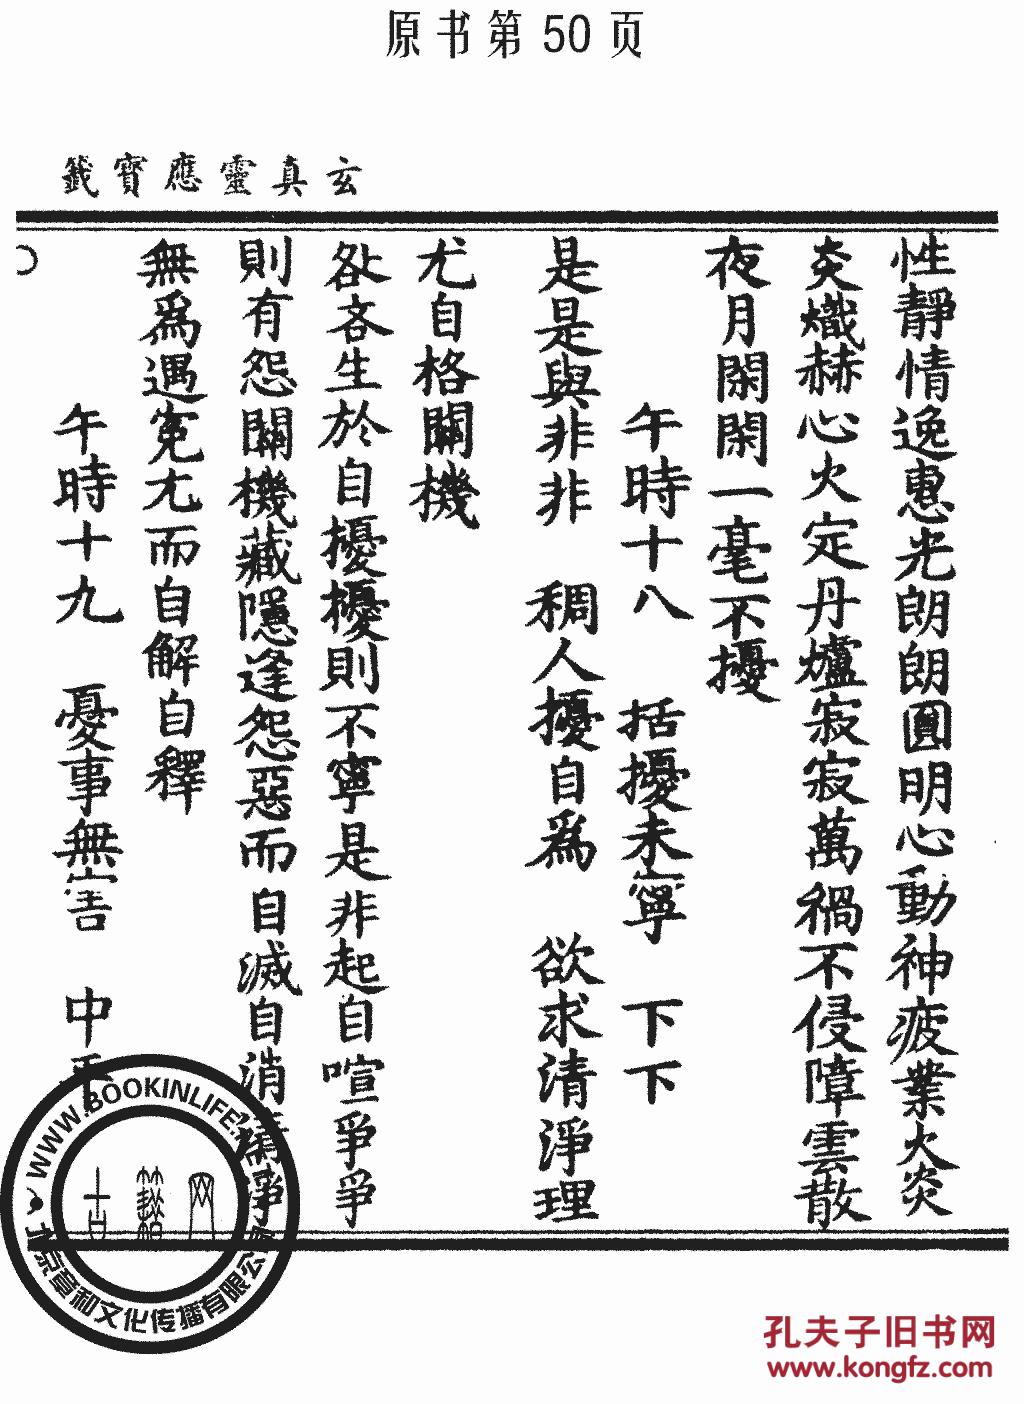 原书第50页
玄真靈應寶籤
性靜情逸惠光朗朗圓明心動神疲業火炎
炎熾赫心火定丹爐寂寂萬禍不侵障雲散
夜月閑閑一毫不擾
午時十八 括擾未寧 下下
是是與非非 稠人擾自為 欲求清淨理
尤自格關機
咎吝生於自擾擾則不寧是非起自喧爭爭
則有怨關機藏隱逢怨惡而自滅自消清淨
無為遇寃尤而自解自釋
午時十九 憂事無害 中平
WWW.BOOKINLIFE.
北京章和文化传播有限公司
孔夫子旧书网
www.kongfz.com